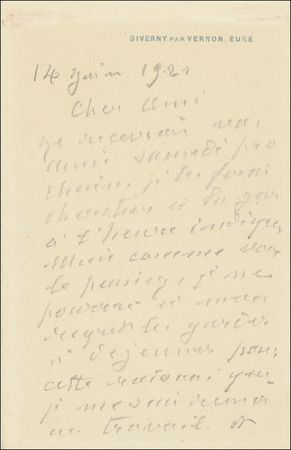 GIVERNY PAR VERNON, EURE
14 juin 1921
Cher ami
je recevrai vos
amis samedi pro
chain, je les ferai
chercher à la gare
à l'heure indiquée
mais comme vous
le pensiez, je ne
pourrai à mon
regret les garder
à déjeuner pour
cette raison que
je me suis remis
au travail et